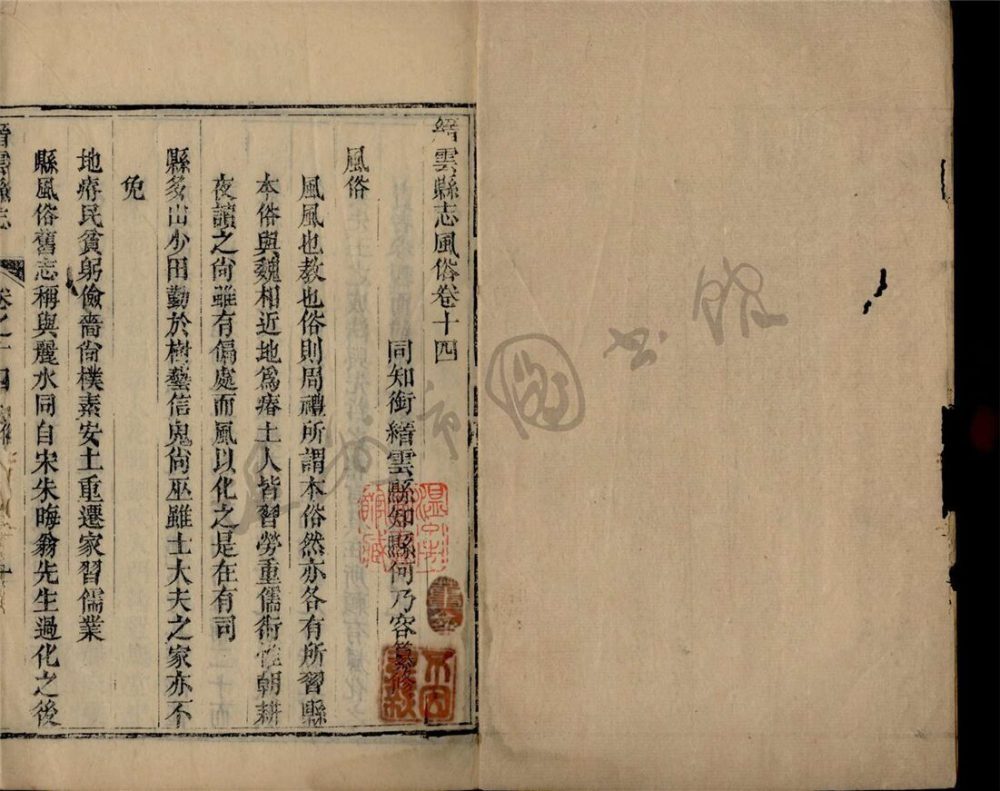 縉雲縣志風俗卷十四
同知銜縉雲縣知縣何乃容纂修
風俗
風風也教也俗則周禮所謂本俗然亦各有所習縣
本俗與魏相近地為瘠土人皆習勞重儒術惟朝耕
夜讀之尚雖有偏處而風以化之是在有司
縣多山少田勤於樹藝信鬼尚巫雖士大夫之家亦不
免
地瘠民貧躬儉嗇尚樸素安土重遷家習儒業
縣風俗舊志稱與麗水同自宋朱晦翁先生過化之後
縉雲縣志
卷之十四
圖書館